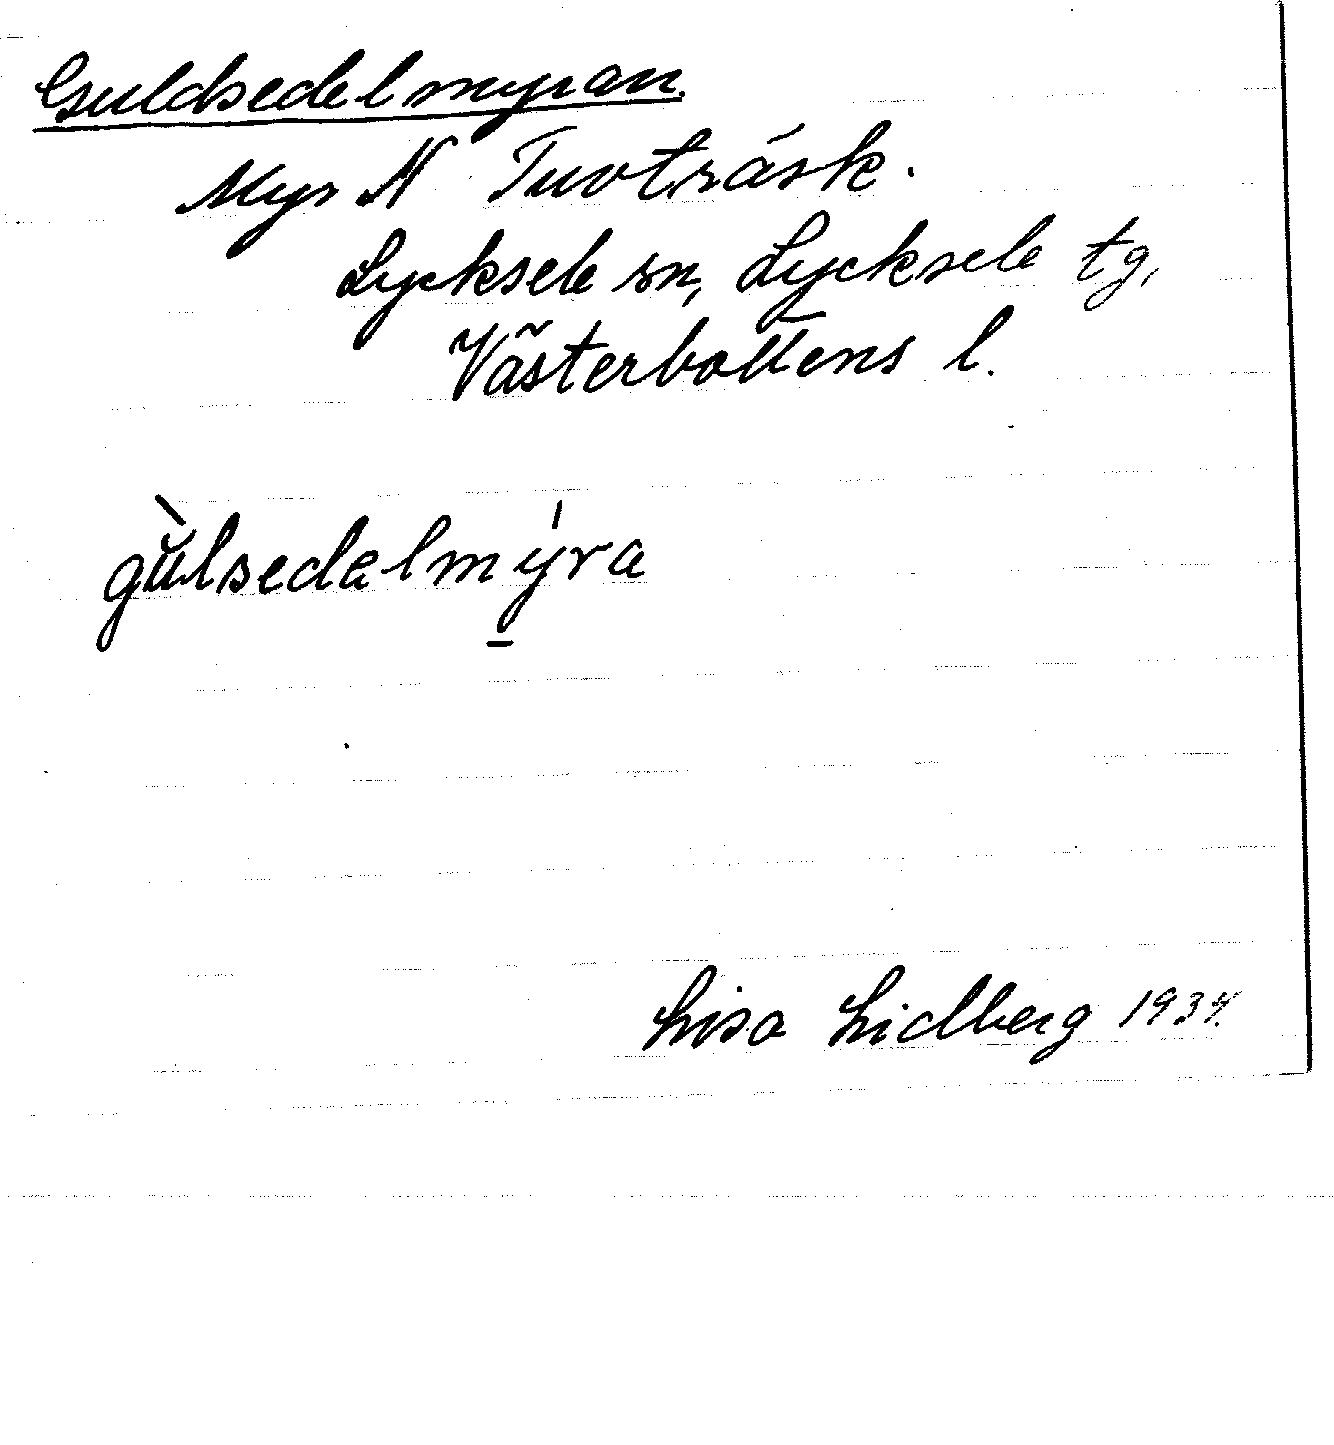 Guldsedelmyran.
Myr N Tuvträsk.
Lycksele sn, Lycksele tg,
Västerbottens l.
gùlsedelmýra
Lisa Lidberg 1934.